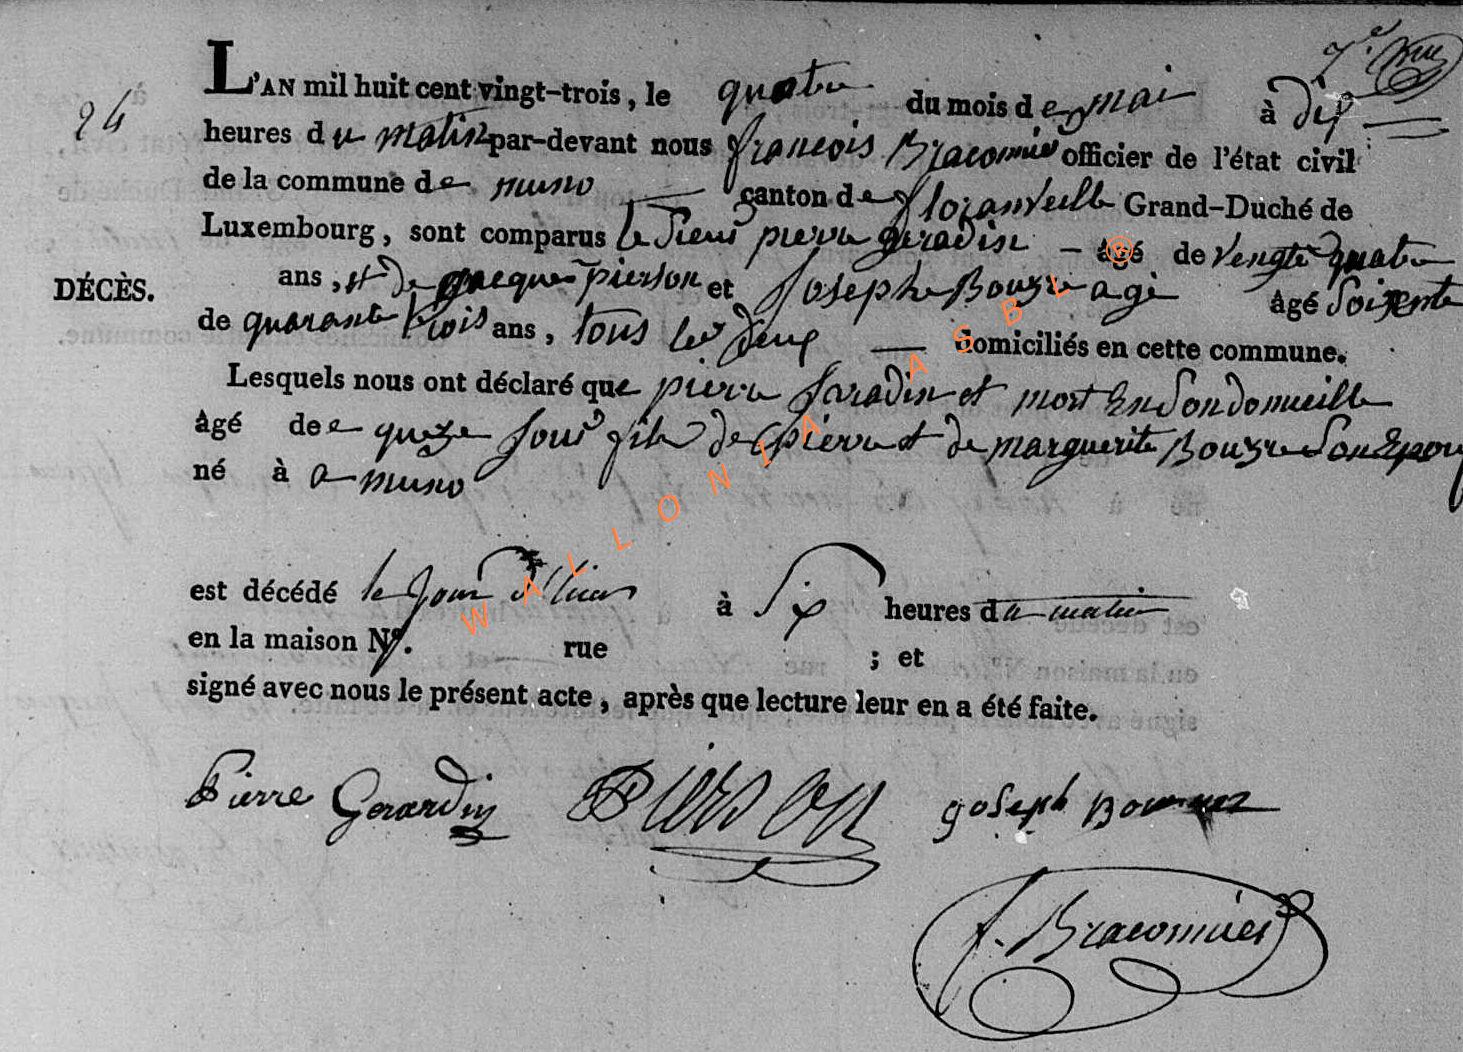 7.e
24
L'AN mil huit cent vingt-trois, le quatre du mois de mai à dix
heures du matin par-devant nous françois Braconnier officier de l'état civil
de la commune de muno canton de floranville Grand-Duché de
Luxembourg, sont comparus le Sieur pierre geradin – âgé de vengte quatre
DÉCÈS.
ans, et de jacque pierson et Joseph Bouzre agé âgé Soixente
de quarante trois ans, tous les deux — domiciliés en cette commune.
Lesquels nous ont déclaré que pierre Jeradin et mort En Son domicille
âgé de queze Jour fils de pierre et de marguerite Bouzre Son Epou
né à a muno
est décédé le Jour d'hier à Six heures du matin
en la maison N°. rue ; et
signé avec nous le présent acte, après que lecture leur en a été faite.
Pierre Gerardin PIERSON joseph
f. Braconnier
WALLONIA ASBL ®